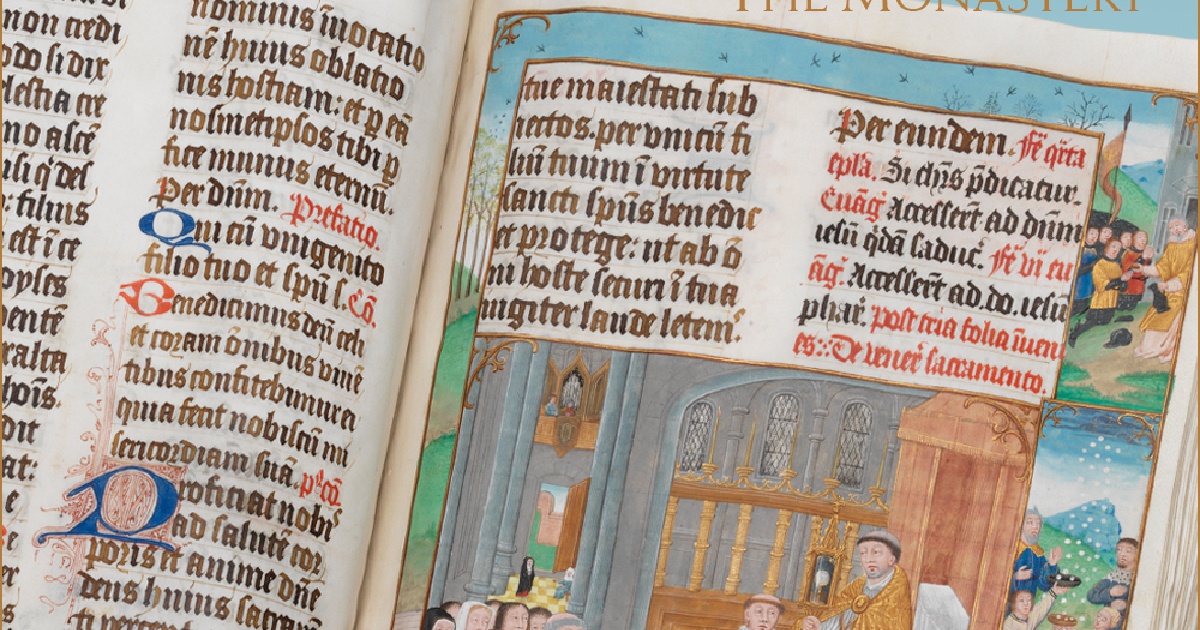 THE MONASTERY
non credi
odo si dix
lestia cre
mo ascē
uli q̇ del
r filius
est i ce
oyses
uentē
ralta
hoīs.
dit
at:
e
nominis īuocatio
nē huius oblatio
nis hostiam: et ꝑ eā
nosmetipsos tibi ꝑ
fice munus eternū.
Per dn̄m. Prefatio.
Qui cū vnigenito
filio tuo et spū s. Cō.
Benedicimus deū celi
et coram ōnibus viuē
tibus confitebimur ei
quia fecit nobiscū mi
sericordiam suā. p̄ cō.
Proficiat nobis
ad salutē cor
poris et anime dn̄e
deus huius sacram
ti percept
tue maiestati sub
iectos. per vnicū fi
liū tuum ī virtute
sancti spūs benedic
et protege: ut ab ō
ni hoste securi ī tua
iugiter laude letem̄.
Per eundem. Fē q̄rta
epła. Si chūs p̄dicatur.
Euāg̅ Accesserēt ad dn̄m
iesū q̄dā saduc̄. Fē vi eu
āg̅. Accesserēt ad. do. iesū
phar̄. post tria folia īuen
es: De vener̄ sacramento.